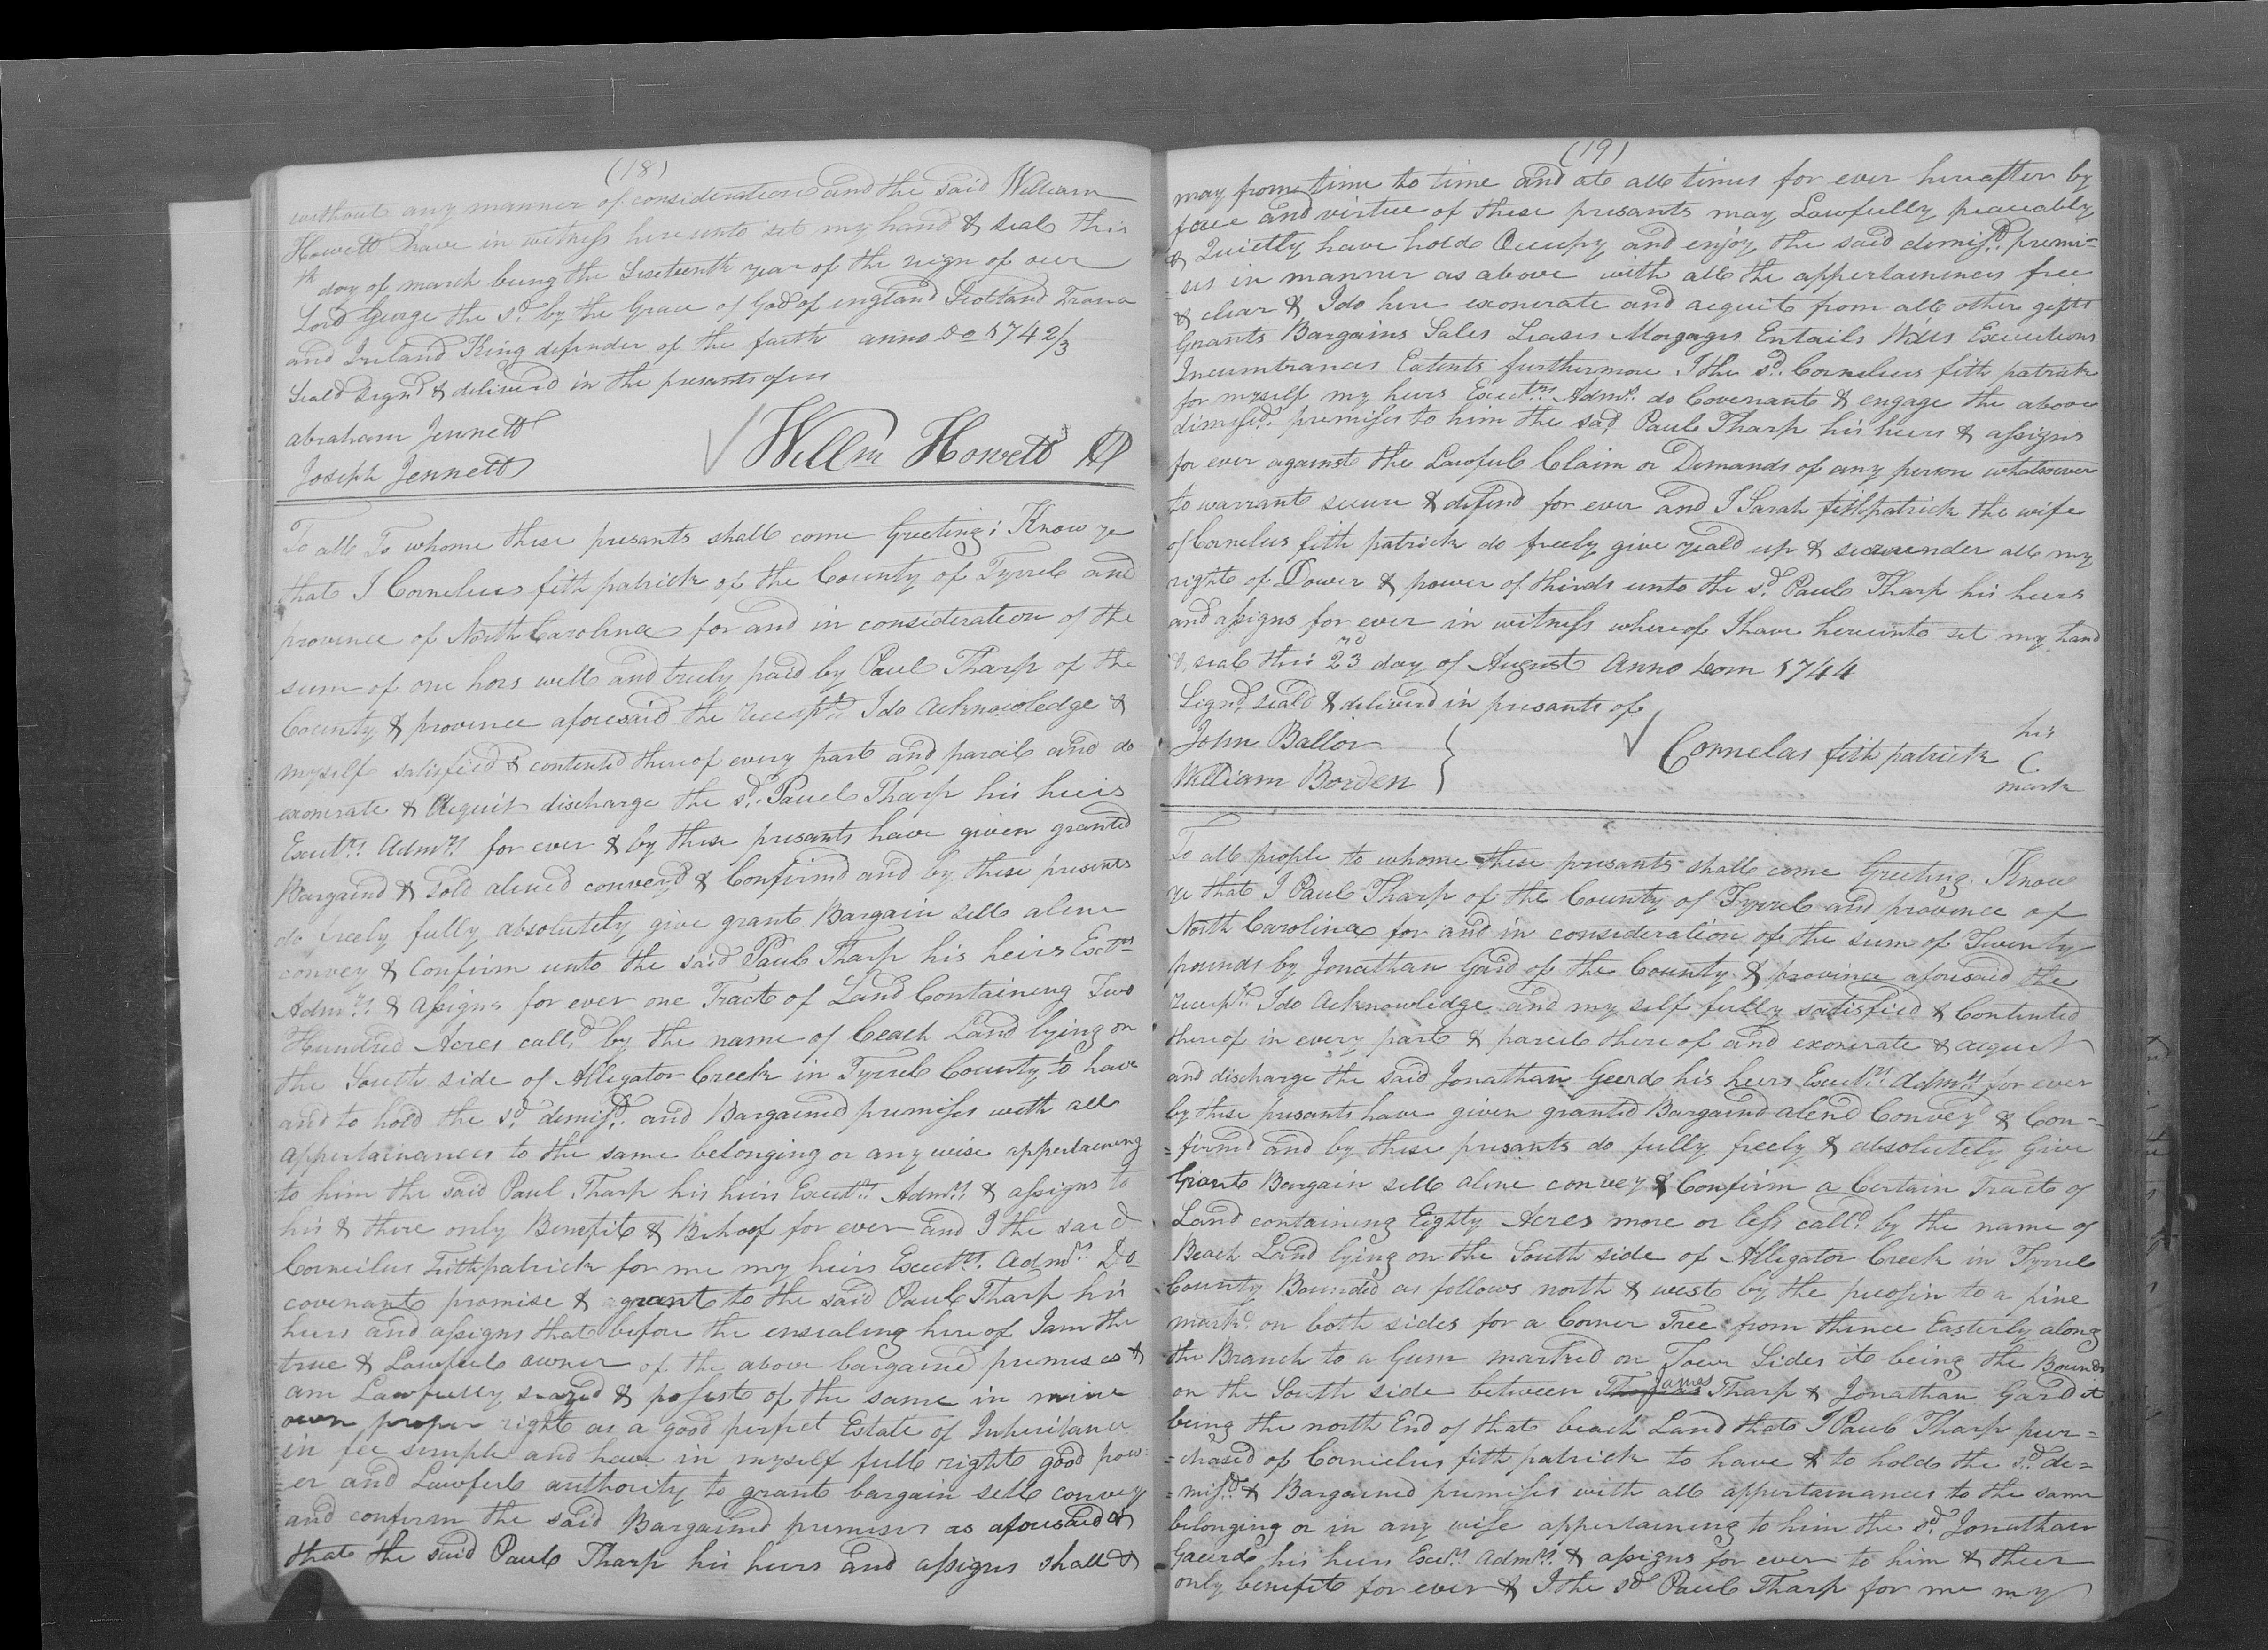 (18)
without any manner of consideration and the said William
Howett have in witness hereunto set my hand & seal this
th day of march being the Sixteenth year of the reign of our
Lord George the sd. by the Grace of God of england Scotland France
and Ireland King defender of the faith anno Do 174 2/3
Seald Signd & deliverd in the presants of us
abraham Jennett
Joseph Jennett
Willm Howett
To all To whome these presants shall come Greeting; Know ye
that I Cornelius fith patrick of the County of Tyrrel and
province of North Carolina for and in consideration of the
sum of one hors well and truly paid by Paul Tharp of the
County & province aforesaid the receipt I do acknowledge &
myself satisfied & contented thereof every part and parcil and do
exonerate & acquit discharge the sd. Paul Tharp his heirs
Excutrs. Admrs. for ever & by these presants have given granted
Bargaind & sold aliend conveyd & Confirmd and by these presents
do freely fully absolutely give grant Bargain sell aline
convey & Confirm unto the said Paul Tharp his heirs Excts
Admrs & assigns for ever one Tract of Land Containing Two
Hundred Acres calld by the name of Beach Land lying on
the South side of Alligator Creek in Tyrrel County to have
and to hold the sd. demisd. and Bargained premises with all
appertainances to the same belonging or any wise appertaining
to him the said Paul Tharp his heirs Excutrs. Admrs. & assigns to
his & there only Benefit & Behoof for ever and I the said
Corneilus Fithpatrick for me my heirs Excutrs. Admrs. Do
covenant promise & grant to the said Paul Tharp his
heirs and assigns that before the ensealing here of I am the
true & Lawful owner of the above bargained premises &
am Lawfully seazed & possest of the same in mine
own proper right as a good perfect Estate of Inheritance
in fee simple and have in myself full right good pow-
er and Lawful authority to grant bargain sell convey
and confirm the said Bargaind premises as aforesaid &
that the said Paul Tharp his heirs and assigns shall &
(19)
may from time to time and at all times for ever hereafter by
force and virtue of these presants may Lawfully peaceably
& Quietly have hold Occupy and enjoy the said demisd. premi=
=ses in manner as above with all the appertainences free
& clear & I do here exonerate and acquit from all other gifts
Grants Bargains Sales Leases Morgages Entails Wills Executions
Incumbrances Extents furthermore I the sd. Cornelius fith patrick
for myself my heirs Excutrs. Admrs. do Covenant & engage the above
dimisd. premises to him the sad. Paul Tharp his heirs & assigns
for ever against the Lawful Claim or Demands of any person whatsoever
to warrant secure & defend for ever and I Sarah fithpatrick the wife
of Cornelius fith patrick do freely give yeald up & surrender all my
right of Dower & power of thirds unto the sd. Paul Tharp his heirs
and assigns for ever in witness whereof I have hereunto set my hand
& seal this 23rd day of August Anno Dom 1744
Signd. seald & deliverd in presants of
John Ballor
William Borden
Cornelas fith patrick
his
C
mark
To all people to whome these presants shall come Greeting Know
ye that I Paul Tharp of the County of Tyrrel and province of
North Carolina for and in consideration of the sum of Twenty
pounds by Jonathan Gard of the County & province aforesaid the
receipt I do Acknowledge and my self fully satisfied & Contented
thereof in every part & parcel there of and exonerate & acquit
and discharge the said Jonathan Geerd his heirs Excutrs. Admrs. for ever
by these presants have given granted Bargaind aliend Conveyd & Con-
=firmd and by these presants do fully freely & absolutely Give
Grant Bargain sell aline convey & Confirm a Certain Tract of
Land containing Eighty Acres more or less calld by the name of
Beach Land lying on the South side of Alligator Creek in Tyrrel
County Bounded as follows north & west by the pecosin to a pine
markd. on both sides for a Corner Tree from thence Easterly along
the Branch to a Gum marked on Four Sides it being the Bounds
on the South side between James Tharp & Jonathan Gard it
being the north End of that beach Land that I Paul Tharp pur=
=chased of Corneilus fith patrick to have & to hold the sd. de=
=misd. & Bargained premises with all appertainances to the same
belonging or in any wise appertaining to him the sd. Jonathan
Gaerd his heirs Excutrs. Admrs. & assigns for ever to him & their
only benefit for ever & I the sd Paul Tharp for me my